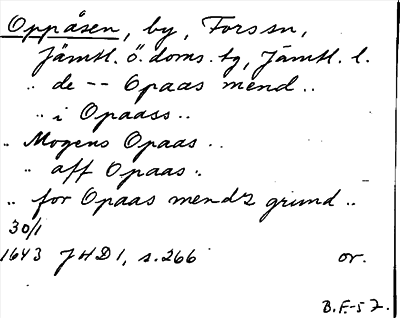 Oppåsen, by, Fors sn,
Jämtl. ö. doms. tg, Jämtl. l.
" de -- Opaas mend ..
" i Opaass ..
" Mogens Opaas ..
" aff Opaas ..
" for Opaas mendz grund ..
30/1
1643 JHD 1, s. 266 or.
B.F.-57.